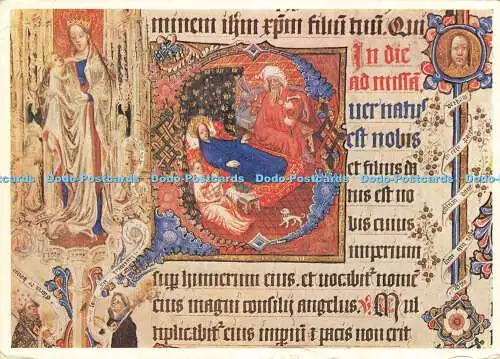 minem ihm xpm filiū tuū. Qui
In die
ad missā
uer natus
est nobis
et filius da
tus est no
bis cuius
imperium
sup humerum eius. et uocabit' nomē
eius magni consilij angelus. V Mul
tiplicabit' eius impiū ⁊ pacis non erit
Dodo-Postcards Dodo-Postcards Dodo-Postcards Dodo-Postcards